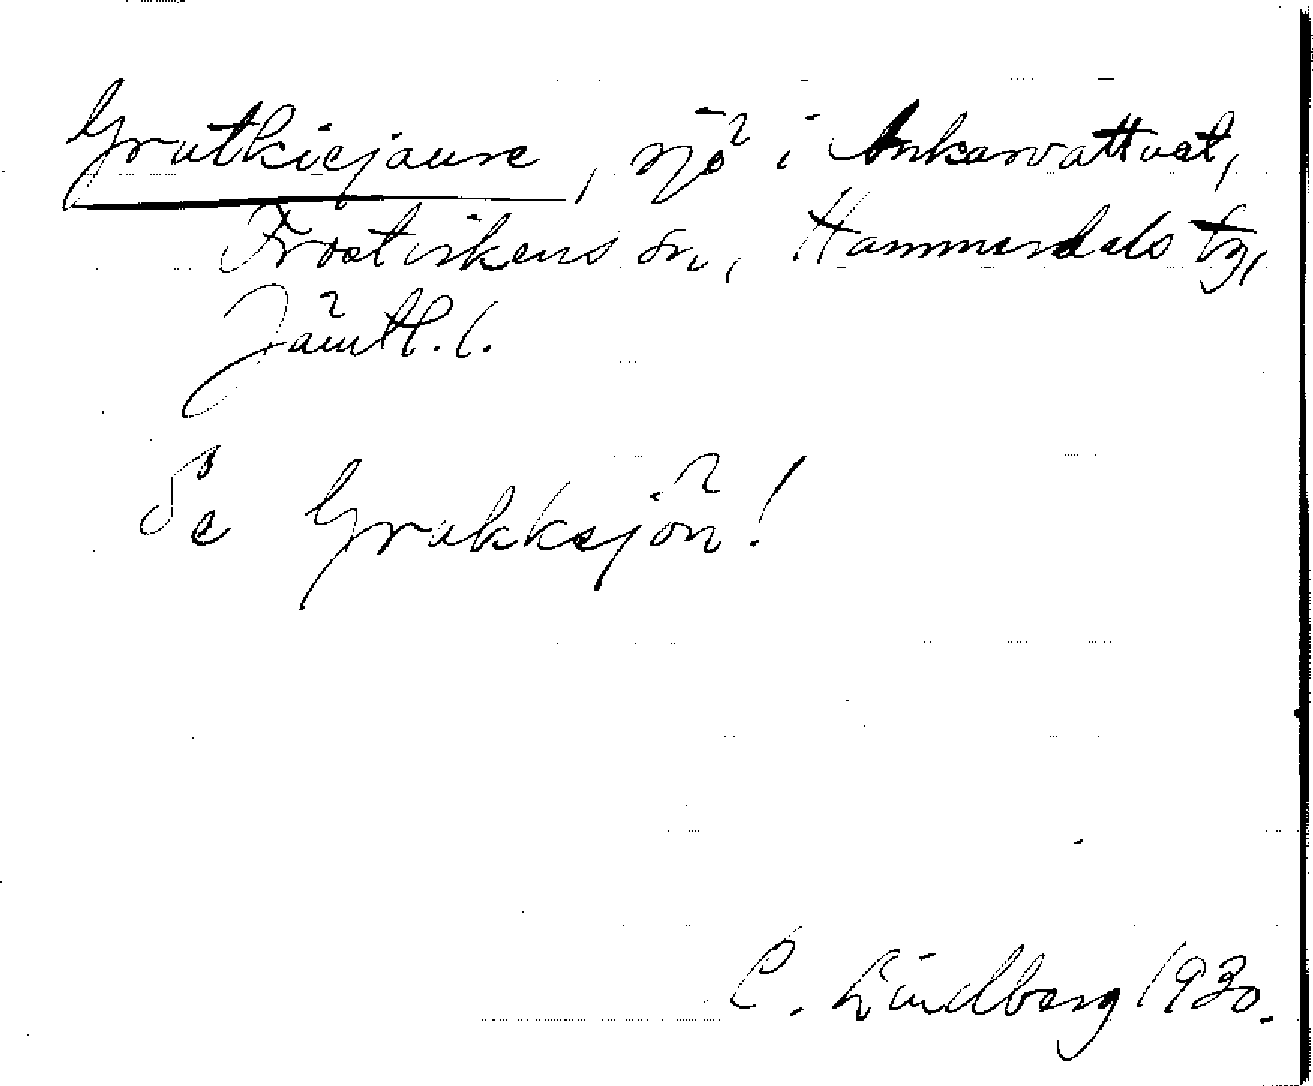 Grutkiejaure, sjö i Ankarvattnet,
Frostvikens sn, Hammerdals tg,
Jämtl. l.
Se Grukksjön!
C. Lindberg 1930.